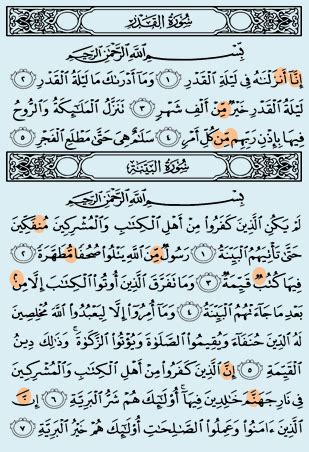 سُورَةُ القَدْرِ
بِسْمِ اللَّهِ الرَّحْمَٰنِ الرَّحِيمِ
إِنَّا أَنزَلْنَاهُ فِي لَيْلَةِ الْقَدْرِ ١ وَمَا أَدْرَاكَ مَا لَيْلَةُ الْقَدْرِ ٢
لَيْلَةُ الْقَدْرِ خَيْرٌ مِّنْ أَلْفِ شَهْرٍ ٣ تَنَزَّلُ الْمَلَائِكَةُ وَالرُّوحُ
فِيهَا بِإِذْنِ رَبِّهِم مِّن كُلِّ أَمْرٍ ٤ سَلَامٌ هِيَ حَتَّىٰ مَطْلَعِ الْفَجْرِ ٥
سُورَةُ البَيِّنَةِ
بِسْمِ اللَّهِ الرَّحْمَٰنِ الرَّحِيمِ
لَمْ يَكُنِ الَّذِينَ كَفَرُوا مِنْ أَهْلِ الْكِتَابِ وَالْمُشْرِكِينَ مُنفَكِّينَ
حَتَّىٰ تَأْتِيَهُمُ الْبَيِّنَةُ ١ رَسُولٌ مِّنَ اللَّهِ يَتْلُو صُحُفًا مُّطَهَّرَةً ٢
فِيهَا كُتُبٌ قَيِّمَةٌ ٣ وَمَا تَفَرَّقَ الَّذِينَ أُوتُوا الْكِتَابَ إِلَّا مِن
بَعْدِ مَا جَاءَتْهُمُ الْبَيِّنَةُ ٤ وَمَا أُمِرُوا إِلَّا لِيَعْبُدُوا اللَّهَ مُخْلِصِينَ
لَهُ الدِّينَ حُنَفَاءَ وَيُقِيمُوا الصَّلَاةَ وَيُؤْتُوا الزَّكَاةَ ۚ وَذَٰلِكَ دِينُ
الْقَيِّمَةِ ٥ إِنَّ الَّذِينَ كَفَرُوا مِنْ أَهْلِ الْكِتَابِ وَالْمُشْرِكِينَ
فِي نَارِ جَهَنَّمَ خَالِدِينَ فِيهَا ۚ أُولَٰئِكَ هُمْ شَرُّ الْبَرِيَّةِ ٦ إِنَّ
الَّذِينَ آمَنُوا وَعَمِلُوا الصَّالِحَاتِ أُولَٰئِكَ هُمْ خَيْرُ الْبَرِيَّةِ ٧